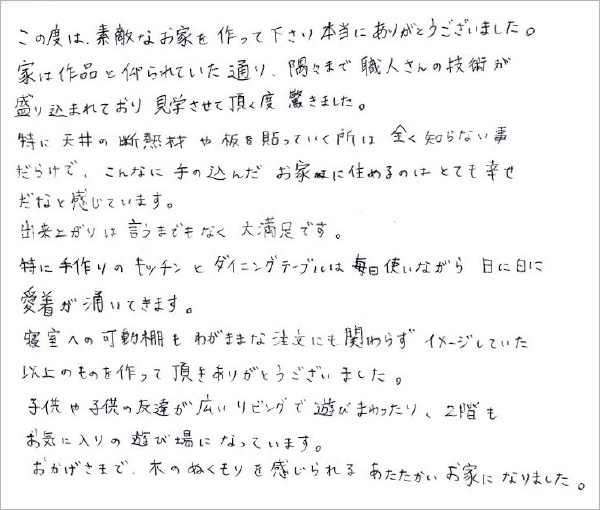 この度は、素敵なお家を作って下さり本当にありがとうございました。
家は作品と仰られていた通り、隅々まで職人さんの技術が
盛り込まれており見学させて頂く度驚きました。
特に天井の断熱材や板を貼っていく所は全く知らない事
だらけで、こんなに手の込んだお家に住めるのはとても幸せ
だなと感じています。
出来上がりは言うまでもなく大満足です。
特に手作りのキッチンとダイニングテーブルは毎日使いながら日に日に
愛着が涌いてきます。
寝室への可動棚もわがままな注文にも関わらずイメージしていた
以上のものを作って頂きありがとうございました。
子供や子供の友達が広いリビングで遊びまわったり、2階も
お気に入りの遊び場になっています。
おかげさまで、木のぬくもりを感じられるあたたかいお家になりました。